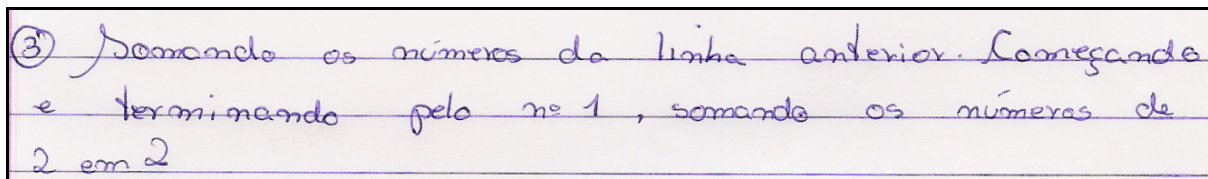 3) Somando os números da linha anterior. Começando
e terminando pelo nº 1, somando os números de
2 em 2